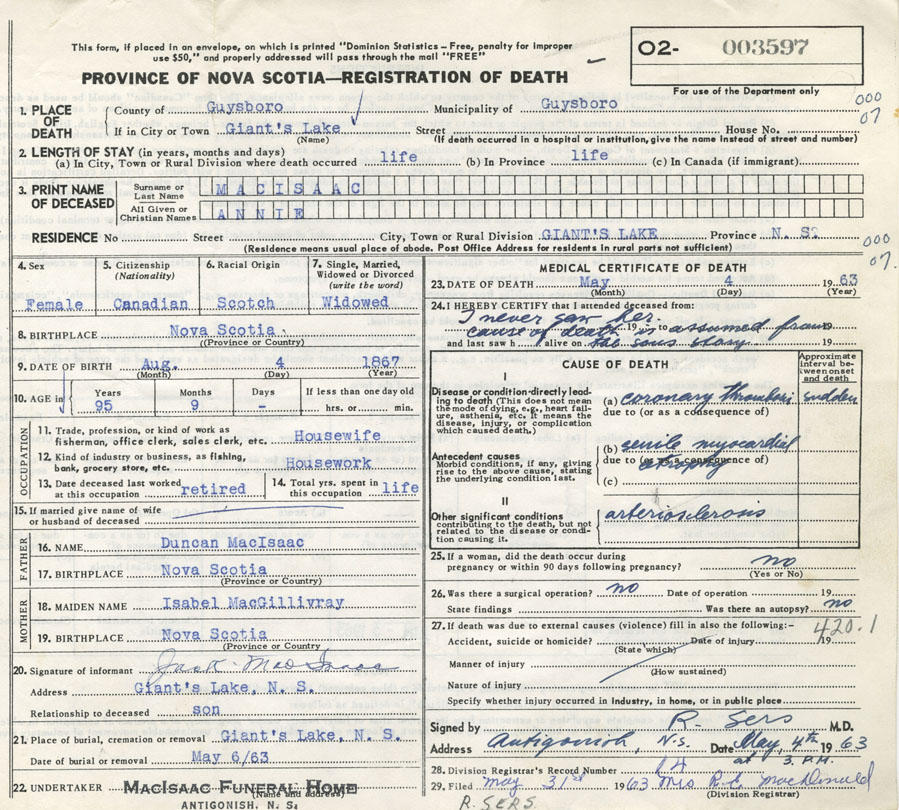 This form, if placed in an envelope, on which is printed "Dominion Statistics – Free, penalty for improper
use $50," and properly addressed will pass through the mail "FREE"
PROVINCE OF NOVA SCOTIA—REGISTRATION OF DEATH
O2- 003597
For use of the Department only
000
07
1. PLACE OF DEATH
County of Guysboro Municipality of Guysboro
If in City or Town Giant's Lake Street House No.
(Name) (If death occurred in a hospital or institution, give the name instead of street and number)
2. LENGTH OF STAY (in years, months and days)
(a) In City, Town or Rural Division where death occurred life (b) In Province life (c) In Canada (if immigrant)
3. PRINT NAME OF DECEASED
Surname or Last Name MACISAAC
All Given or Christian Names ANNIE
RESIDENCE No Street City, Town or Rural Division GIANT'S LAKE Province N. S.
(Residence means usual place of abode. Post Office Address for residents in rural parts not sufficient)
000
07.
4. Sex
Female
5. Citizenship
(Nationality)
Canadian
6. Racial Origin
Scotch
7. Single, Married,
Widowed or Divorced
(write the word)
Widowed
8. BIRTHPLACE Nova Scotia
(Province or Country)
9. DATE OF BIRTH Aug. 4 1867
(Month) (Day) (Year)
10. AGE in
Years Months Days If less than one day old
95 9 - hrs. or min.
OCCUPATION
11. Trade, profession, or kind of work as
fisherman, office clerk, sales clerk, etc. Housewife
12. Kind of industry or business, as fishing,
bank, grocery store, etc. Housework
13. Date deceased last worked
at this occupation retired
14. Total yrs. spent in
this occupation life
15. If married give name of wife
or husband of deceased
FATHER
16. NAME Duncan MacIsaac
17. BIRTHPLACE Nova Scotia
(Province or Country)
MOTHER
18. MAIDEN NAME Isabel MacGillivray
19. BIRTHPLACE Nova Scotia
(Province or Country
20. Signature of informant Jack MacIsaac
Address Giant's Lake, N. S.
Relationship to deceased son
21. Place of burial, cremation or removal Giant's Lake, N. S.
Date of burial or removal May 6/63
22. UNDERTAKER MACISAAC FUNERAL HOME
(Name and address)
ANTIGONISH, N. S.
MEDICAL CERTIFICATE OF DEATH
23. DATE OF DEATH May 4 19 63
(Month) (Day) (Year)
24. I HEREBY CERTIFY that I attended deceased from:
I never saw her.
19 to 19
cause of death is assumed from
and last saw h alive on 19
the sons story
CAUSE OF DEATH
Approximate
interval be-
tween onset
and death
I
Disease or condition directly lead-
ing to death (This does not mean
the mode of dying, e.g., heart fail-
ure, asthenia, etc. It means the
disease, injury, or complication
which caused death.)
(a) coronary thrombosis sudden
due to (or as a consequence of)
Antecedent causes
Morbid conditions, if any, giving
rise to the above cause, stating
the underlying condition last.
(b) senile myocardial
due to (or as a consequence of)
atrophy
(c)
II
Other significant conditions
contributing to the death, but not
related to the disease or condi-
tion causing it.
arteriosclerosis
25. If a woman, did the death occur during
pregnancy or within 90 days following pregnancy? no
(Yes or No)
26. Was there a surgical operation? no Date of operation 19
State findings Was there an autopsy? no
27. If death was due to external causes (violence) fill in also the following:-
420.1
Accident, suicide or homicide? Date of injury 19
(State which)
Manner of injury
(How sustained)
Nature of injury
Specify whether injury occurred in Industry, in home, or in public place
Signed by R. Sers M.D.
Address Antigonish, N.S. Date May 4th 19 63
at 3. P.M.
28. Division Registrar's Record Number 64
29. Filed May 31st 1963 Mrs R.C. MacDonald
(Division Registrar)
R. SERS